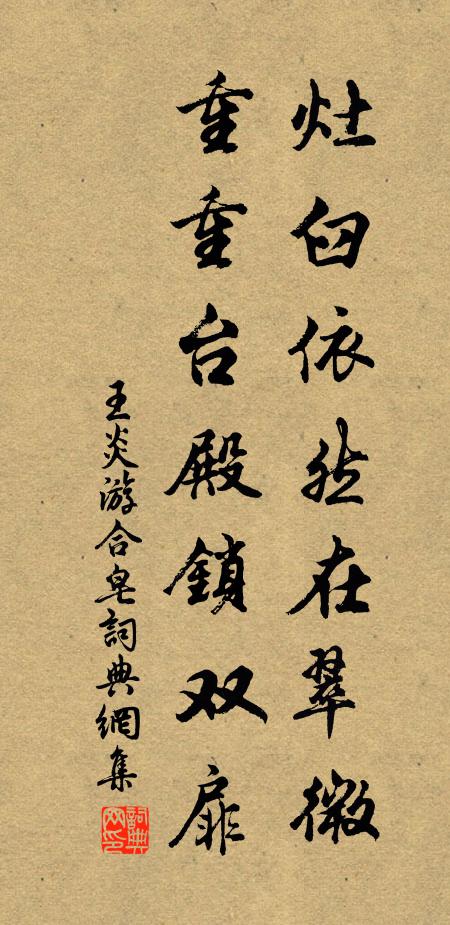 灶臼依然在翠微
重重台殿鎖双扉
王炎游合皂詞典網集
詞典網印